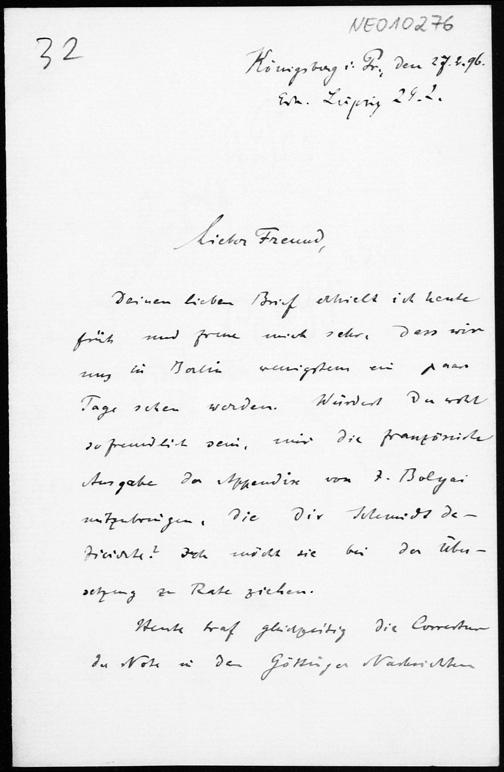 NEO10276
32
Königsberg i. Pr., den 27.2.96.
Erh. Leipzig 29.2.
Lieber Freund,
Deinen lieben Brief erhielt ich heute
früh und freue mich sehr, dass wir
uns in Berlin wenigstens ein paar
Tage sehen werden. Würdest Du wohl
so freundlich sein, mir die französische
Ausgabe des Appendix von J. Bolyai
mitzubringen, die Dir Schmidt de-
dicirte? Ich möcht sie bei der Über-
setzung zu Rate ziehen.
Heute traf gleichzeitig die Correctur
der Note in den Göttinger Nachrichten